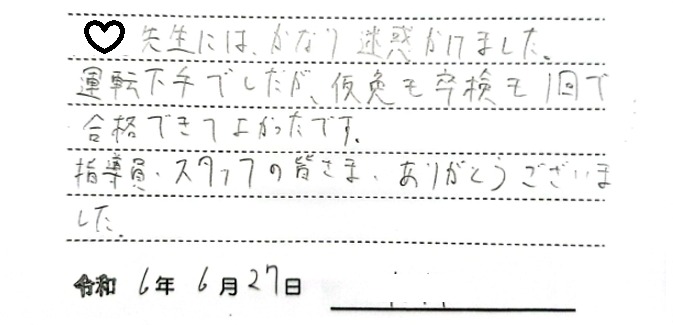 ♡先生には、かなり迷惑かけました。
運転下手でしたが、仮免も卒検も1回で
合格できてよかったです。
指導員・スタッフの皆さま、ありがとうございま
した。
令和 6年 6月27日